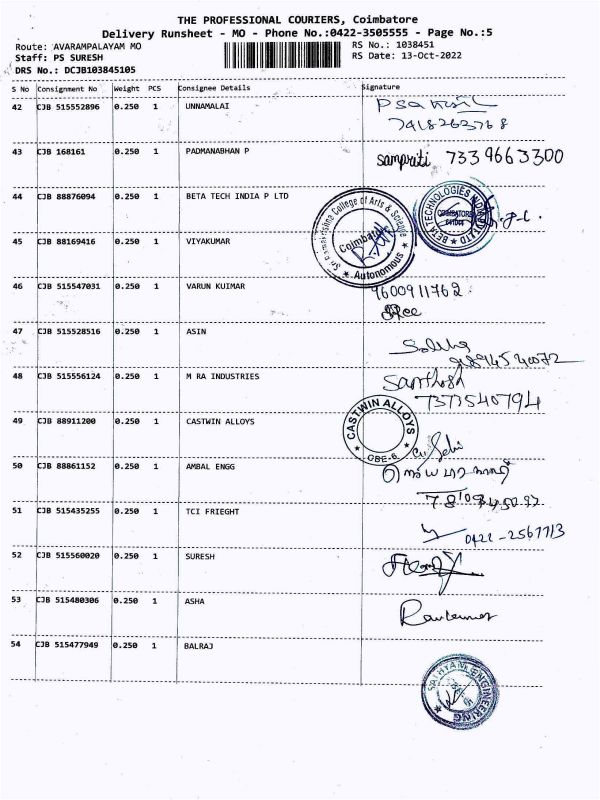 THE PROFESSIONAL COURIERS, Coimbatore
Delivery Runsheet - MO - Phone No.:0422-3505555 - Page No.:5
Route: AVARAMPALAYAM MO
RS No.: 1038451
Staff: PS SURESH
RS Date: 13-Oct-2022
DRS No.: DCJB103845105
S No Consignment No Weight PCS Consignee Details Signature
42 CJB 515552896 0.250 1 UNNAMALAI
7418263768
43 CJB 168161 0.250 1 PADMANABHAN P sampriti 7339663300
44 CJB 88876094 0.250 1 BETA TECH INDIA P LTD
BETA TECHNOLOGIES COIMBATORE
45 CJB 88169416 0.250 1 VIYAKUMAR
Sri Ramakrishna College of Arts & Science Coimbatore Autonomous
46 CJB 515547031 0.250 1 VARUN KUIMAR 9600911762
47 CJB 515528516 0.250 1 ASIN
9894540072
48 CJB 515556124 0.250 1 M RA INDUSTRIES Santhosh
7373540794
49 CJB 88911200 0.250 1 CASTWIN ALLOYS
CASTWIN ALLOYS CBE-6
50 CJB 88861152 0.250 1 AMBAL ENGG
51 CJB 515435255 0.250 1 TCI FRIEGHT
0422-2567713
52 CJB 515560020 0.250 1 SURESH
53 CJB 515480306 0.250 1 ASHA
54 CJB 515477949 0.250 1 BALRAJ
ENGINEERING